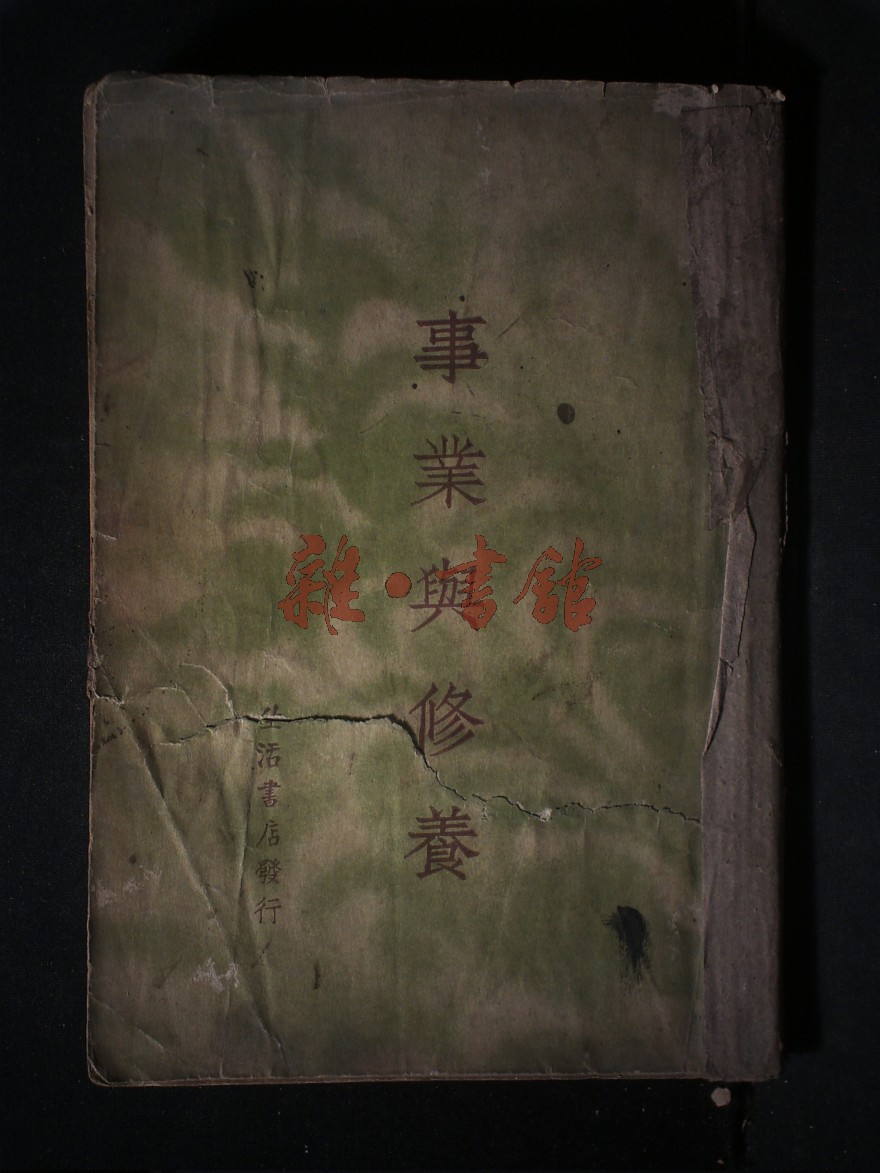 事業與修養
生活書店發行
雜·書館